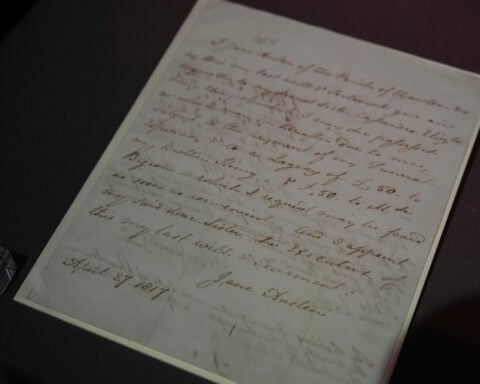 I Jane Austen of the Parish of Chawton do
by this my last Will & Testament give and
bequeath to my dearest Sister Cassandra Elizth
every thing of which I may die possessed,
or which may be hereafter due to me,
subject to the payment of my Funeral
Expences, & to a Legacy of £50. to
my Brother Henry, & £50. to M. de
Bigeon which I request may be paid
as soon as convenient. And I appoint
my said dear Sister the Executrix of
this my last Will & Testament.
Jane Austen
April 27. 1817